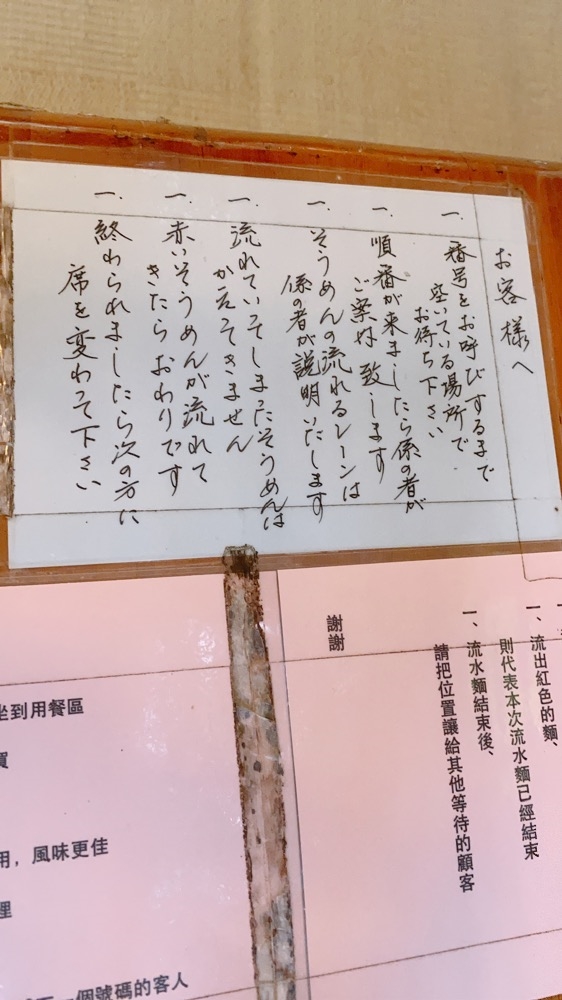 お客様へ
一.番号をお呼びするまで
空いている場所で
お待ち下さい
一.順番が来ましたら係の者が
ご案内致します
一.そうめんの流れるレーンは
係の者が説明いたします
一.流れていってしまったそうめんは
かえってきません
一.赤いそうめんが流れて
きたらおわりです
一.終わられましたら次の方に
席を変わって下さい
一、流出紅色的麵、
則代表本次流水麵已經結束
一、流水麵結束後、
請把位置讓給其他等待的顧客
謝謝
坐到用餐區
用，風味更佳
理
一個號碼的客人